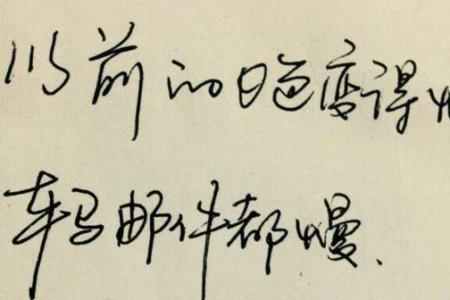 从前的日色变得
车马邮件都慢、